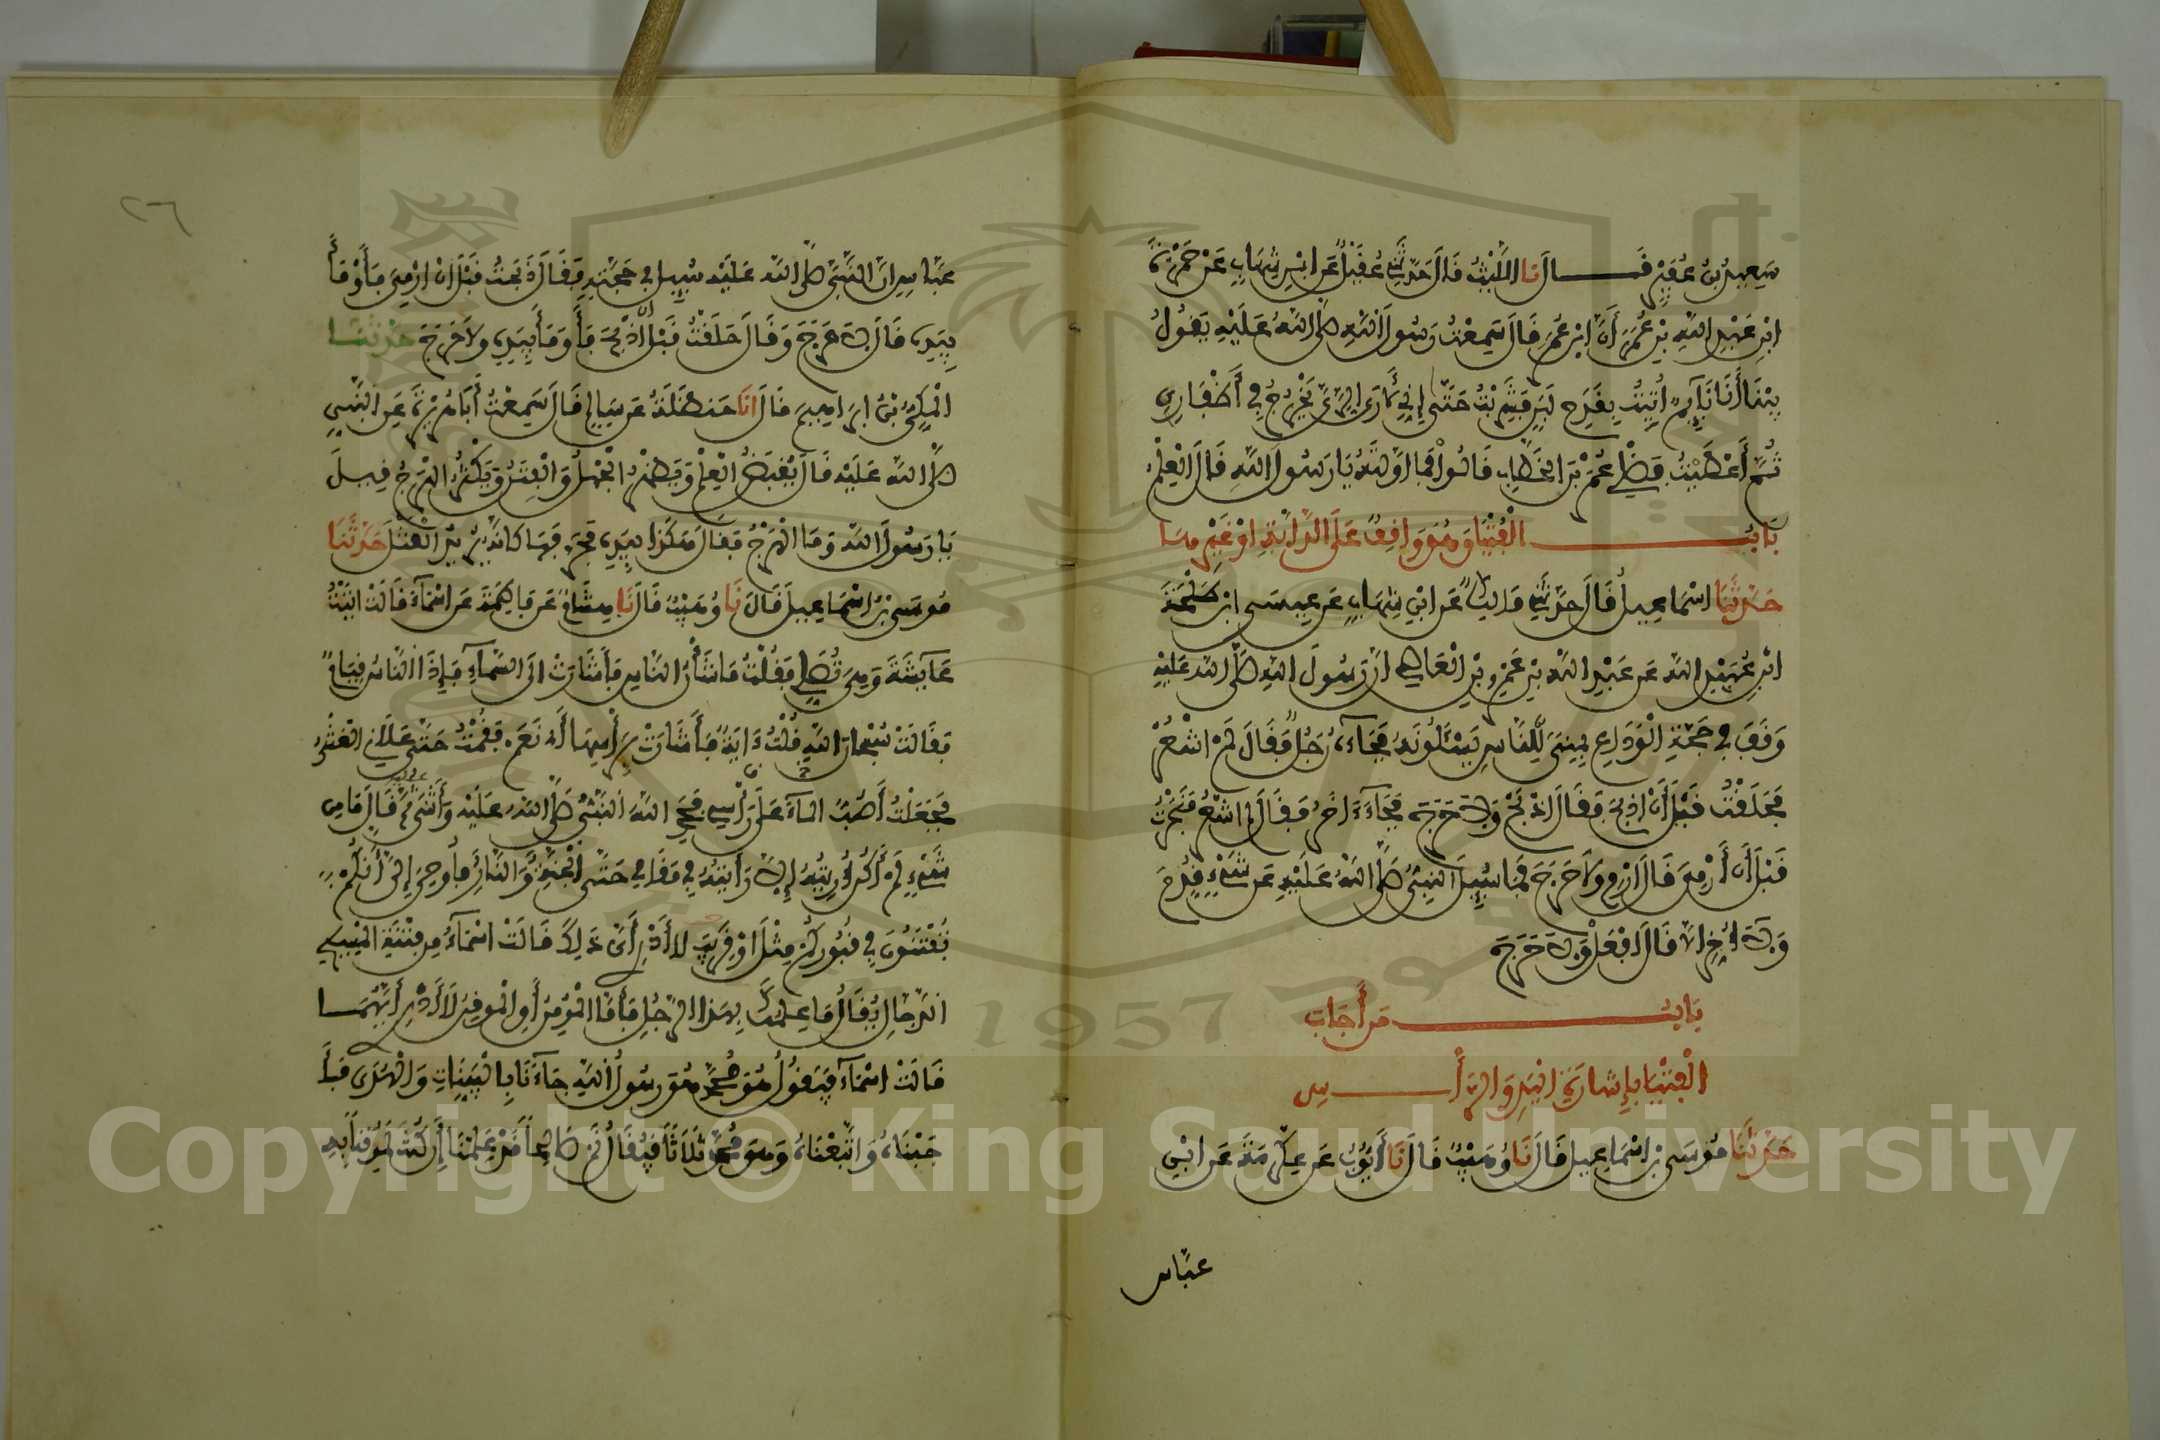 سَعِيدُ بْنُ عُفَيْرٍ قَالَ نَا اللَّيْثُ قَالَ حَدَّثَنِي عُقَيْلٌ عَنِ ابْنِ شِهَابٍ عَنْ حَمْزَةَ
ابْنِ عَبْدِ اللَّهِ بْنِ عُمَرَ أَنَّ ابْنَ عُمَرَ قَالَ سَمِعْتُ رَسُولَ اللَّهِ صَلَّى اللَّهُ عَلَيْهِ يَقُولُ
بَيْنَا أَنَا نَائِمٌ أُتِيتُ بِقَدَحِ لَبَنٍ فَشَرِبْتُ حَتَّى إِنِّي لَأَرَى الرِّيَّ يَخْرُجُ فِي أَظْفَارِي
ثُمَّ أَعْطَيْتُ فَضْلِي عُمَرَ بْنَ الْخَطَّابِ قَالُوا فَمَا أَوَّلْتَهُ يَا رَسُولَ اللَّهِ قَالَ الْعِلْمَ
بَابُ الْفُتْيَا وَهُوَ وَاقِفٌ عَلَى الدَّابَّةِ أَوْ غَيْرِهَا
حَدَّثَنَا إِسْمَاعِيلُ قَالَ حَدَّثَنِي مَالِكٌ عَنِ ابْنِ شِهَابٍ عَنْ عِيسَى ابْنِ طَلْحَةَ
ابْنِ عُبَيْدِ اللَّهِ عَنْ عَبْدِ اللَّهِ بْنِ عَمْرِو بْنِ الْعَاصِي أَنَّ رَسُولَ اللَّهِ صَلَّى اللَّهُ عَلَيْهِ
وَقَفَ فِي حَجَّةِ الْوَدَاعِ بِمِنًى لِلنَّاسِ يَسْأَلُونَهُ فَجَاءَهُ رَجُلٌ فَقَالَ لَمْ أَشْعُرْ
فَحَلَقْتُ قَبْلَ أَنْ أَذْبَحَ فَقَالَ اذْبَحْ وَلَا حَرَجَ فَجَاءَ آخَرُ فَقَالَ لَمْ أَشْعُرْ فَنَحَرْتُ
قَبْلَ أَنْ أَرْمِيَ قَالَ ارْمِ وَلَا حَرَجَ فَمَا سُئِلَ النَّبِيُّ صَلَّى اللَّهُ عَلَيْهِ عَنْ شَيْءٍ قُدِّمَ
وَلَا أُخِّرَ إِلَّا قَالَ افْعَلْ وَلَا حَرَجَ
بَابُ مَنْ أَجَابَ
الْفُتْيَا بِإِشَارَةِ الْيَدِ وَالرَّأْسِ
حَدَّثَنَا مُوسَى بْنُ إِسْمَاعِيلَ قَالَ نَا وُهَيْبٌ قَالَ نَا أَيُّوبُ عَنْ عِكْرِمَةَ عَنِ ابْنِ
عبَّاس
٢٦
عَبَّاسٍ أَنَّ النَّبِيَّ صَلَّى اللَّهُ عَلَيْهِ سُئِلَ فِي حَجَّتِهِ فَقَالَ ذَبَحْتُ قَبْلَ أَنْ أَرْمِيَ فَأَوْمَأَ
بِيَدِهِ قَالَ لَا حَرَجَ وَقَالَ حَلَقْتُ قَبْلَ أَنْ أَذْبَحَ فَأَوْمَأَ بِيَدِهِ وَلَا حَرَجَ حَدَّثَنَا
الْمَكِّيُّ بْنُ إِبْرَاهِيمَ قَالَ أَنَا حَنْظَلَةُ عَنْ سَالِمٍ قَالَ سَمِعْتُ أَبَا هُرَيْرَةَ عَنِ النَّبِيِّ
صَلَّى اللَّهُ عَلَيْهِ قَالَ يُقْبَضُ الْعِلْمُ وَيَظْهَرُ الْجَهْلُ وَالْفِتَنُ وَيَكْثُرُ الْهَرْجُ قِيلَ
يَا رَسُولَ اللَّهِ وَمَا الْهَرْجُ فَقَالَ هَكَذَا بِيَدِهِ فَحَرَّفَهَا كَأَنَّهُ يُرِيدُ الْقَتْلَ حَدَّثَنَا
مُوسَى بْنُ إِسْمَاعِيلَ قَالَ نَا وُهَيْبٌ قَالَ نَا هِشَامٌ عَنْ فَاطِمَةَ عَنْ أَسْمَاءَ قَالَتْ أَتَيْتُ
عَائِشَةَ وَهِيَ تُصَلِّي فَقُلْتُ مَا شَأْنُ النَّاسِ فَأَشَارَتْ إِلَى السَّمَاءِ فَإِذَا النَّاسُ قِيَامٌ
فَقَالَتْ سُبْحَانَ اللَّهِ قُلْتُ آيَةٌ فَأَشَارَتْ بِرَأْسِهَا أَيْ نَعَمْ فَقُمْتُ حَتَّى عَلَانِي الْغَشْيُ
فَجَعَلْتُ أَصُبُّ الْمَاءَ عَلَى رَأْسِي فَحَمِدَ اللَّهَ النَّبِيُّ صَلَّى اللَّهُ عَلَيْهِ وَأَثْنَى عَلَيْهِ ثُمَّ قَالَ مَا مِنْ
شَيْءٍ لَمْ أَكُنْ أُرِيتُهُ إِلَّا رَأَيْتُهُ فِي مَقَامِي حَتَّى الْجَنَّةُ وَالنَّارُ فَأُوحِيَ إِلَيَّ أَنَّكُمْ
تُفْتَنُونَ فِي قُبُورِكُمْ مِثْلَ أَوْ قَرِيبَ لَا أَدْرِي أَيَّ ذَلِكَ قَالَتْ أَسْمَاءُ مِنْ فِتْنَةِ الْمَسِيحِ
الدَّجَّالِ يُقَالُ مَا عِلْمُكَ بِهَذَا الرَّجُلِ فَأَمَّا الْمُؤْمِنُ أَوِ الْمُوقِنُ لَا أَدْرِي أَيَّهُمَا
قَالَتْ أَسْمَاءُ فَيَقُولُ هُوَ مُحَمَّدٌ هُوَ رَسُولُ اللَّهِ جَاءَنَا بِالْبَيِّنَاتِ وَالْهُدَى فَـ
ـأَجَبْنَاهُ وَاتَّبَعْنَاهُ وَهُوَ مُحَمَّدٌ ثَلَاثًا فَيُقَالُ نَمْ صَالِحًا قَدْ عَلِمْنَا إِنْ كُنْتَ لَمُوقِنًا بِهِ
1957
Copyright © King Saud University